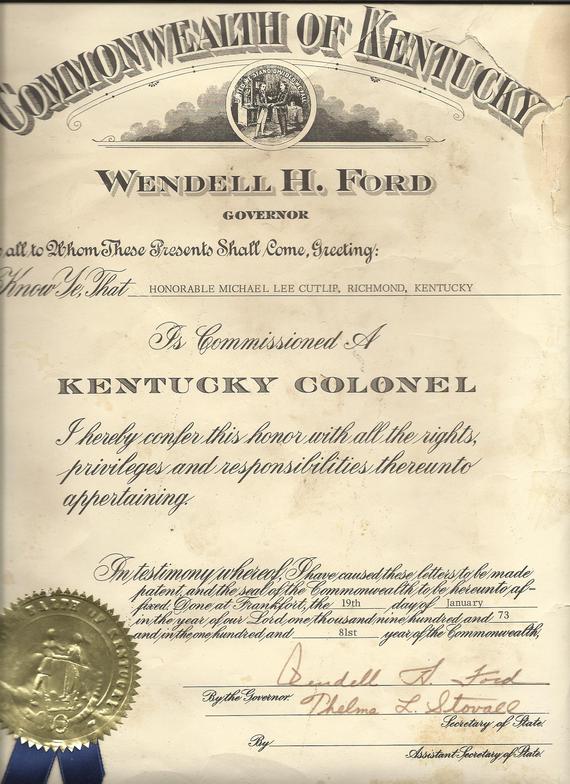 COMMONWEALTH OF KENTUCKY
UNITED WE STAND DIVIDED WE FALL
WENDELL H. FORD
GOVERNOR
all to Whom These Presents Shall Come, Greeting:
Know Ye, That HONORABLE MICHAEL LEE CUTLIP, RICHMOND, KENTUCKY
Is Commissioned A
KENTUCKY COLONEL
I hereby confer this honor with all the rights,
privileges and responsibilities thereunto
appertaining.
In testimony whereof, I have caused these letters to be made
patent, and the seal of the Commonwealth to be hereunto af-
fixed. Done at Frankfort, the 19th day of January
in the year of our Lord one thousand nine hundred and 73
and in the one hundred and 81st year of the Commonwealth.
Wendell H. Ford
By the Governor.
Thelma L. Stovall
Secretary of State.
By
Assistant Secretary of State.